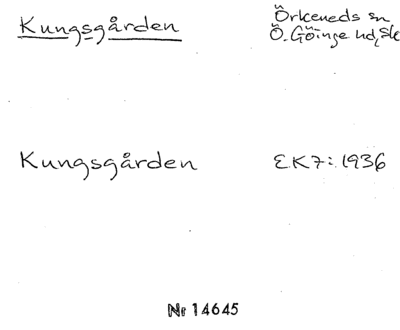 Kungsgården
Örkeneds sn
Ö. Göinge hd, Sk
Kungsgården EK7: 1936
Nr 14645